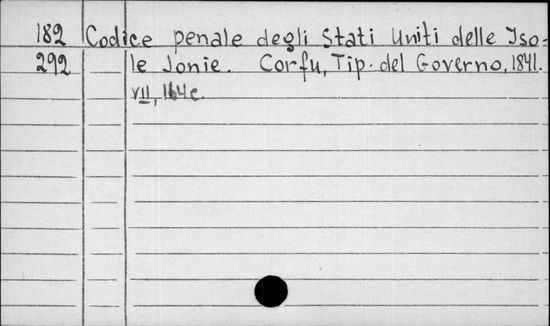 182 Codice penale degli Stati Uniti delle Iso-
292 le Jonie. Corfu, Tip. del Governo, 1841.
VII, 164 c.